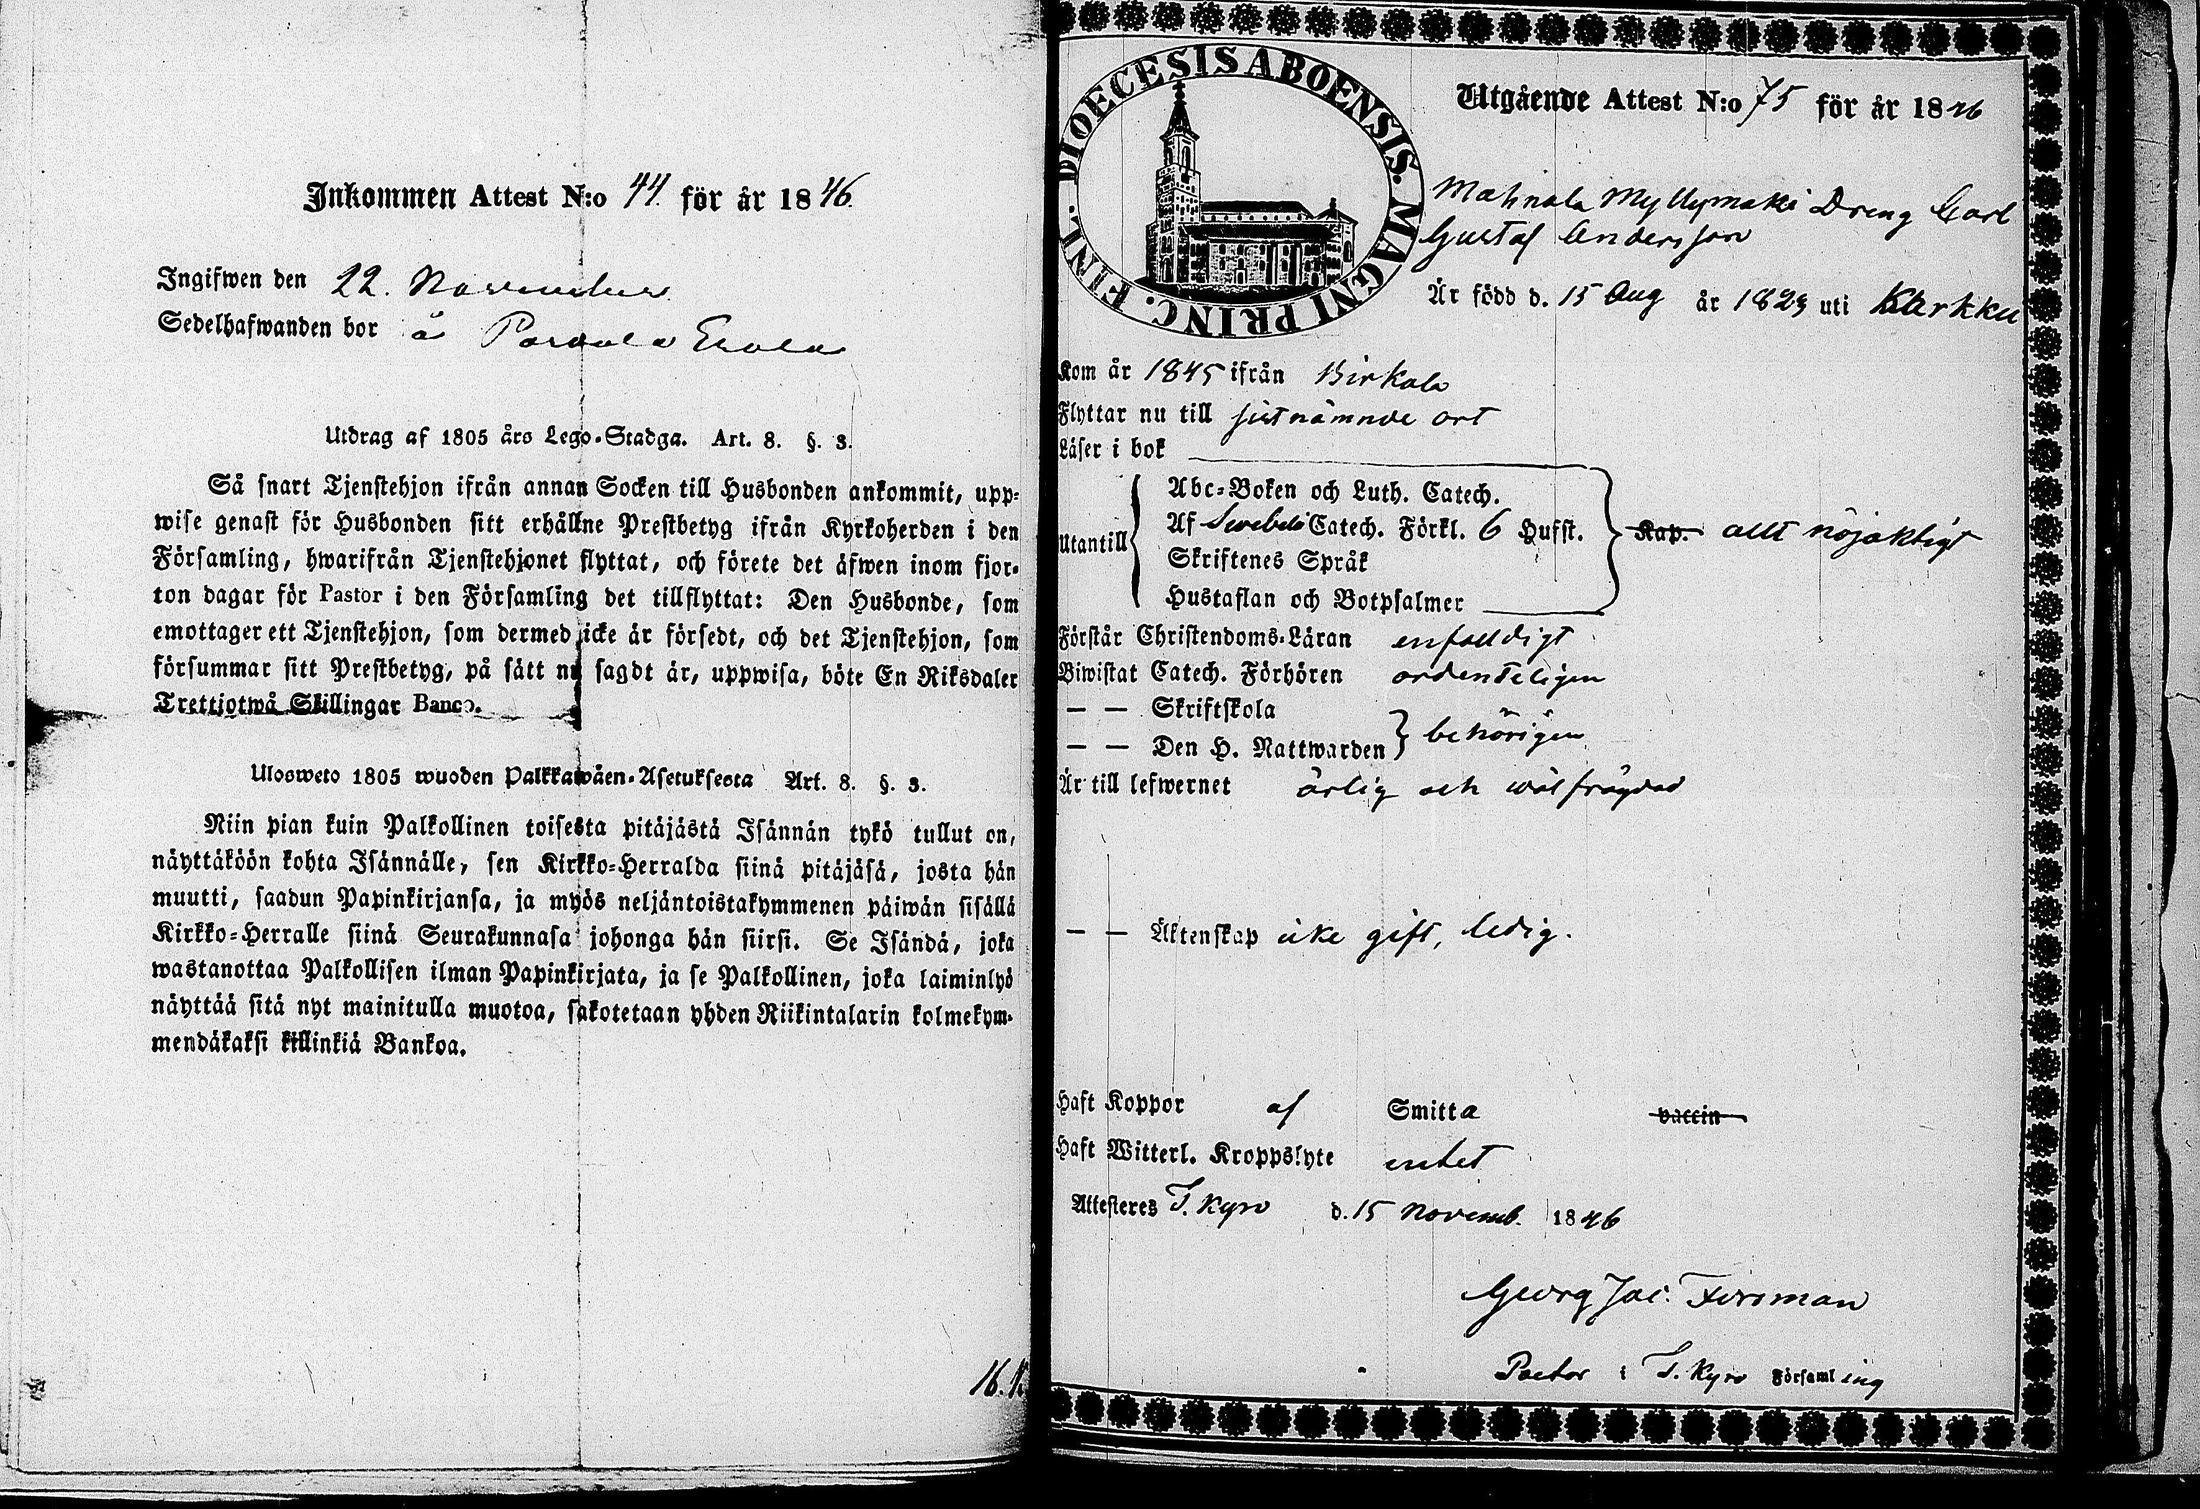 Inkommen Attest N:o 44. för år 1846.
Ingifwen den 22. November
Sedelhafwanden bor å
Utdrag af 1805 års Lego-Stadga. Art. 8. §. 3.
Så snart Tjenstehjon ifrån annan Socken till Husbonden ankommit, upp-
wise genast för Husbonden sitt erhållne Prestbetyg ifrån Kyrkoherden i den
Församling, hwarifrån Tjenstehjonet flyttat, och förete det äfwen inom fjor-
ton dagar för Pastor i den Församling det tillflyttat: Den Husbonde, som
emottager ett Tjenstehjon, som dermed icke är försedt, och det Tjenstehjon, som
försummar sitt Prestbetyg, på sätt nu sagdt är, uppwisa, böte En Riksdaler
Trettiotwå Skillingar Banco.
Ulosweto 1805 wuoden Palkkawäen-Asetuksesta Art. 8. §. 3.
Niin pian kuin Palkollinen toisesta pitäjästä Isännän tykö tullut on,
näyttäköön kohta Isännälle, sen Kirkko-Herralda siinä pitäjäsä, josta hän
muutti, saadun Papinkirjansa, ja myös neljäntoistakymmenen päiwän sisällä
Kirkko-Herralle siinä Seurakunnasa johonga hän siirsi. Se Isändä, joka
wastanottaa Palkollisen ilman Papinkirjata, ja se Palkollinen, joka laiminlyö
näyttää sitä nyt mainitulla muotoa, sakotetaan yhden Riikintalarin kolmekym-
mendäkaksi killinkiä Bankoa.
DIOECESIS ABOENSIS. MAGNI PRINC. FINL.
Utgående Attest N:o 75 för år 1846
Mahnala Myllymäki Dreng Carl
Gustaf Andersson
Är född d. 15 Aug år 1823 uti Karkku
Kom år 1845 ifrån Birkala
Flyttar nu till sistnämnde ort
Läser i bok
Utantill
Abc-Boken och Luth. Catech.
Af Swebeli Catech. Förkl. 6 Hufst.
Skriftenes Språk
Hustaflan och Botpsalmer
Kap. allt nöjaktigt
Förstår Christendoms-Läran enfaldigt
Biwistat Catech. Förhören ordenteligen
— — Skriftskola
— — Den H. Nattwarden behörigen
Är till lefwernet ärlig och wälfrägdad
— — Äktenskap icke gift, ledig.
Haft Koppor af Smitta vaccin
Haft Witterl. Kroppslyte intet
Attesteres T. Kyro d. 15 Novemb. 1846
Georg Jac. Forsman
Pastor i T. Kyro Församling